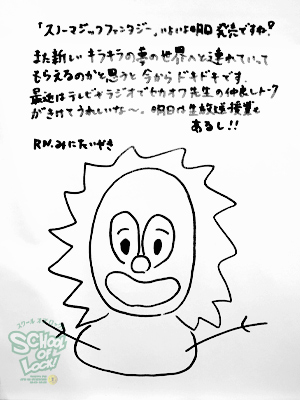 「スノーマジックファンタジー」いよいよ明日発売ですね!
また新しいキラキラの夢の世界へと連れていって
もらえるのかと思うと今からドキドキです。
最近はテレビやラジオでセカオワ先生の仲良しトーク
がきけてうれしいな〜。明日は生放送授業も
あるし!!
RN.みにたいやき
スクール オブ ロック!
SCHOOL
OF
LOCK!